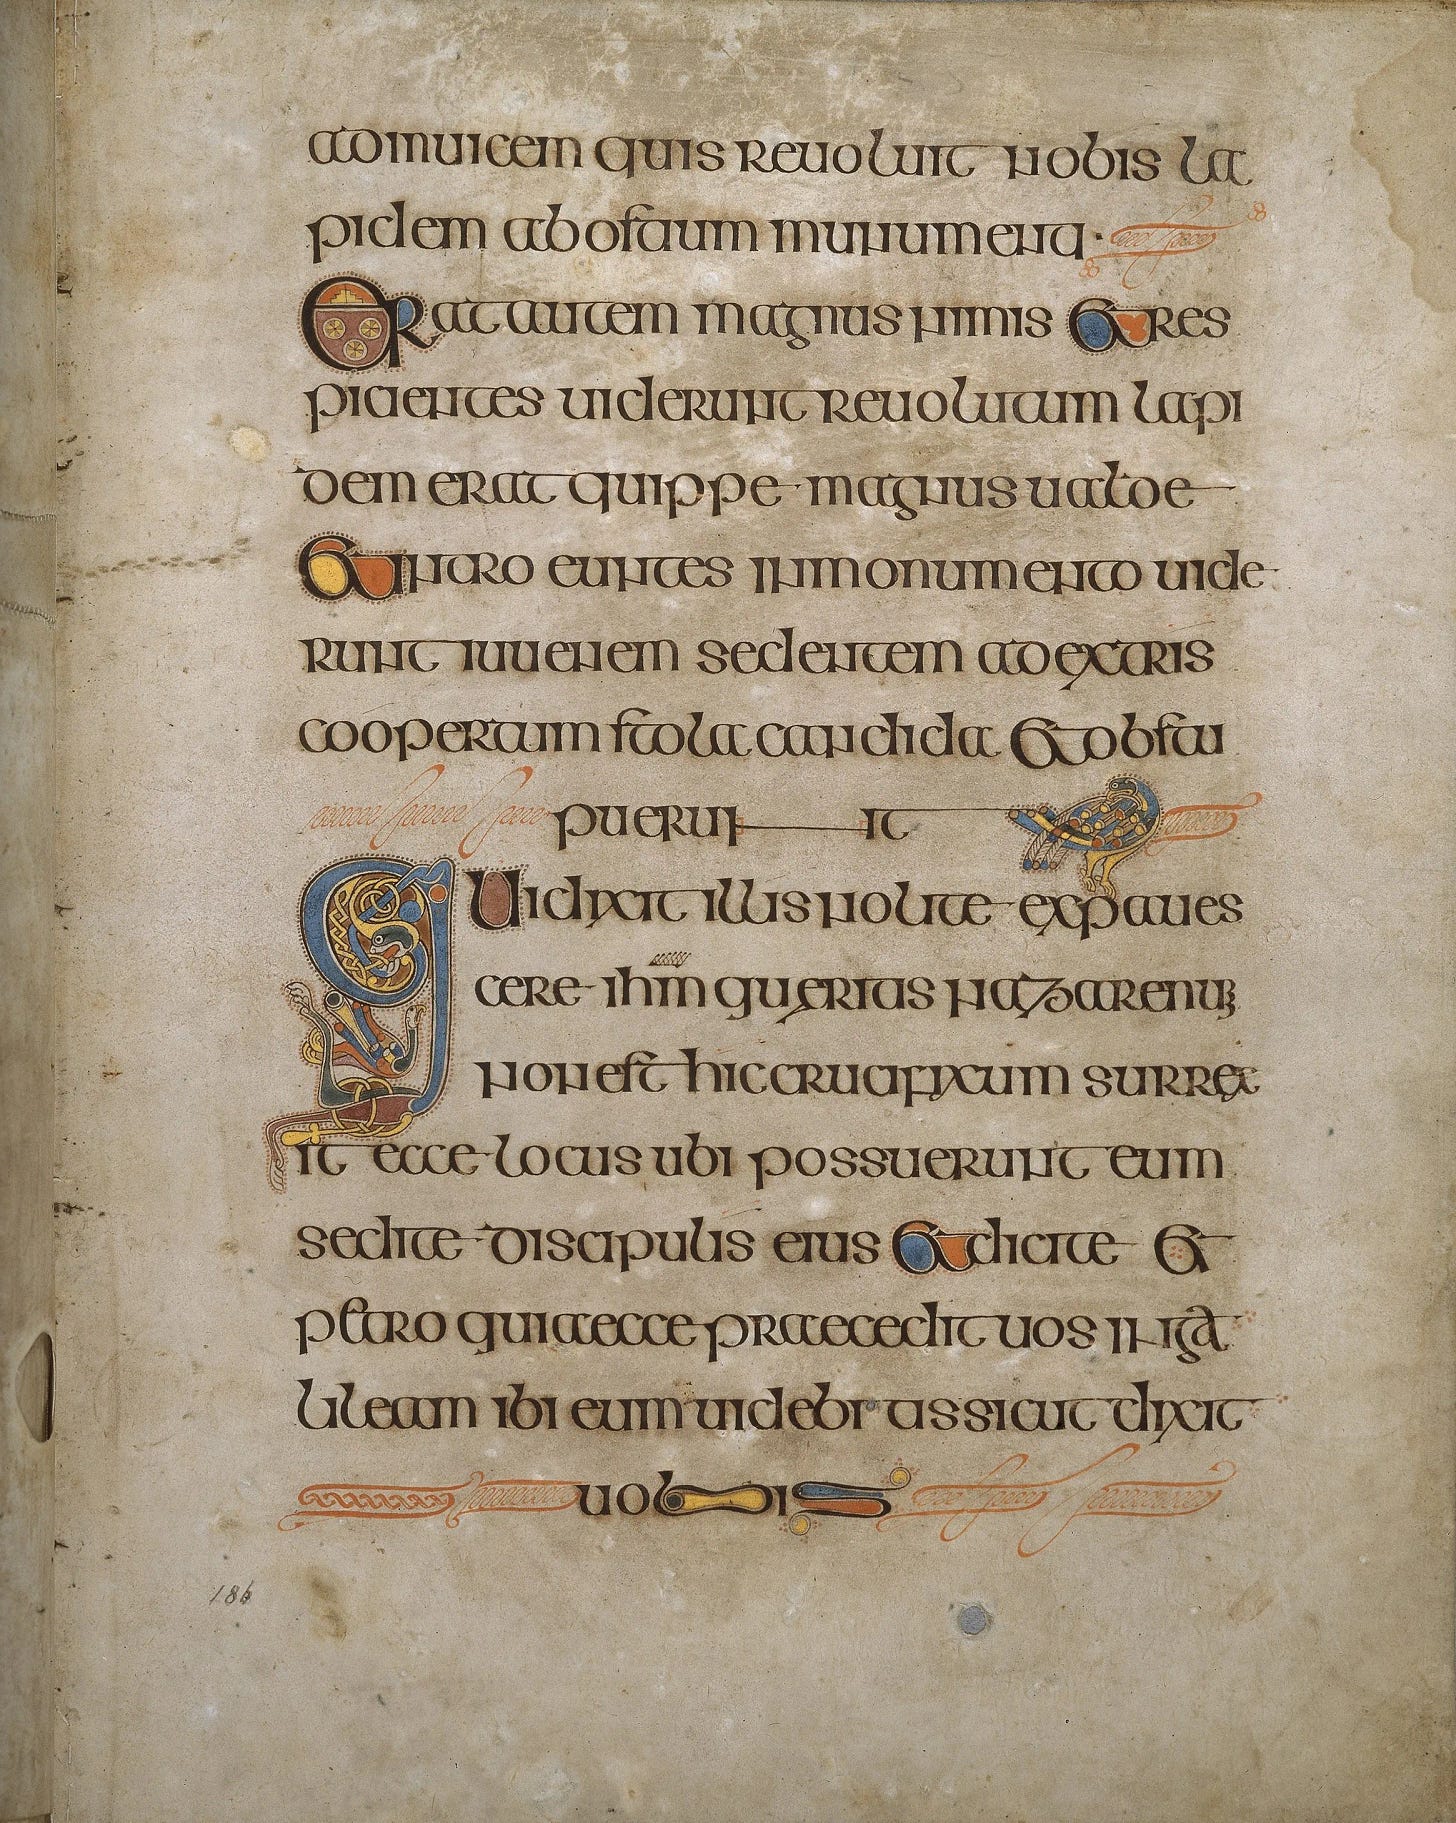 adinuicem quis reuoluit nobis la
pidem abostium munumenti·
Erat autem magnus nimis Et res
picientes uiderunt reuolutum lapi
dem erat quippe magnus ualde
Et intro euntes in monumento uide
runt iuuenem sedentem ad extris
coopertum stola candida Et obstu
puerunt
Qui dixit illis nolite expaues
cere ihm queritis nazarenum
non est hic crucifixum surrex
it ecce locus ubi possuerunt eum
sed ite discipulis eius Et dicite Et
petro quia ecce praecedit uos in ga
lileam ibi eum uidebitis sicut dixit
uobis
186